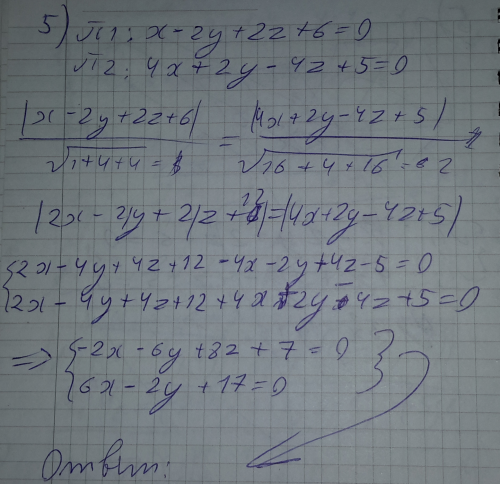 5) π1: x-2y+2z+6=0
π2: 4x+2y-4z+5=0
|x-2y+2z+6| / √1+4+4 = |4x+2y-4z+5| / √16+4+16
|2x-2y+2z+12|=|4x+2y-4z+5|
{2x-4y+4z+12-4x-2y+4z-5=0
{2x-4y+4z+12+4x+2y-4z+5=0
=> {-2x-6y+8z+7=0
{6x-2y+17=0
Ответ: